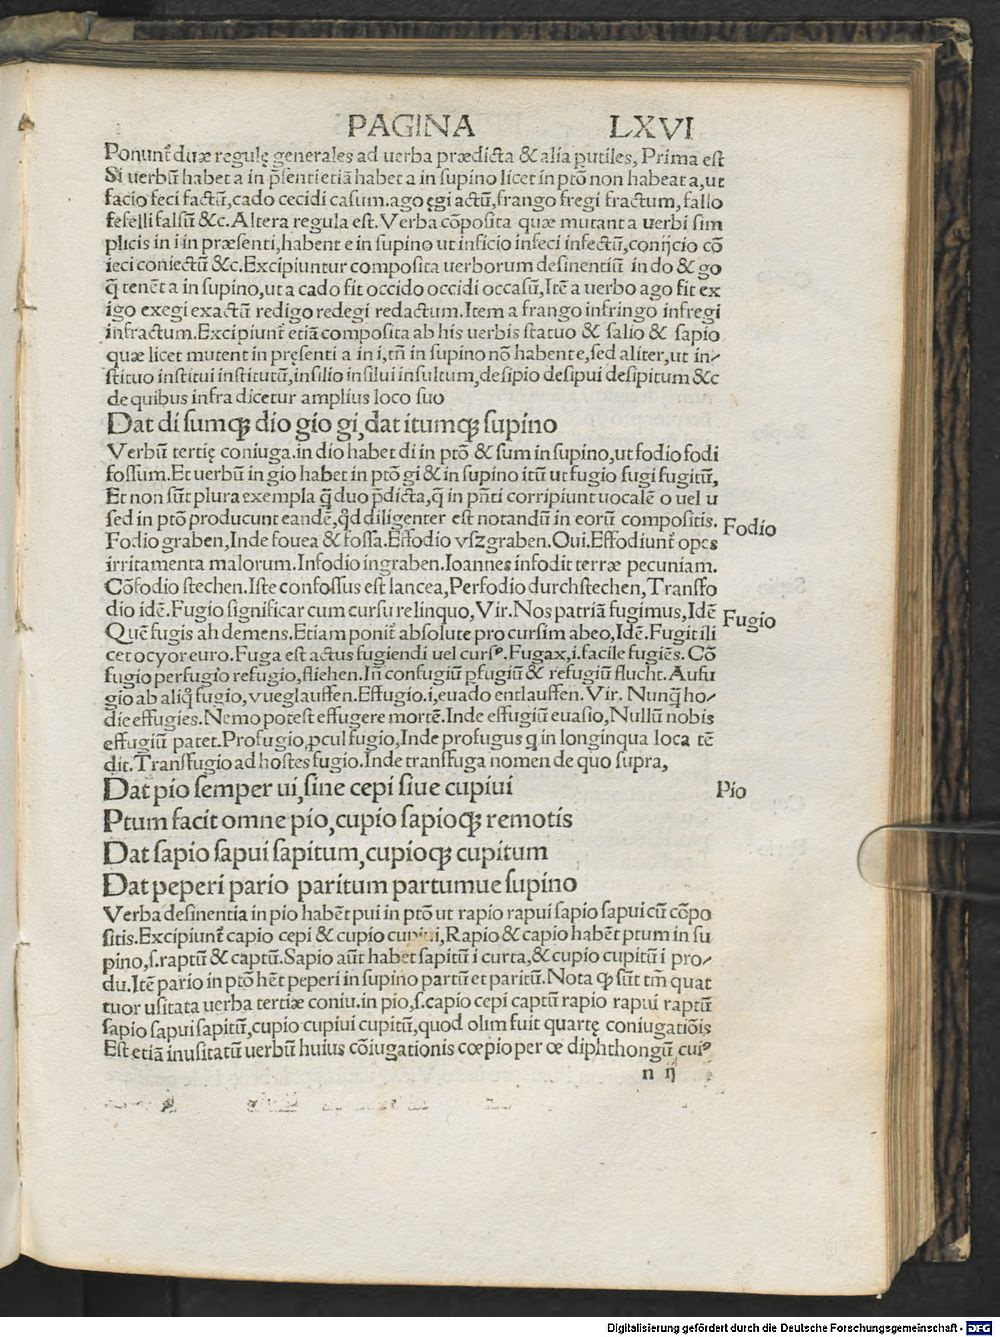 PAGINA LXVI
Ponunt᷑ duæ regulę generales ad uerba prædicta & alia putiles, Prima est
Si uerbū habet a in p̄senti etiā habet a in supino licet in ptō non habeat a, ut
facio feci factū, cado cecidi casum. ago ęgi actū, frango fregi fractum, fallo
fefelli falsū &c. Altera regula est. Verba cōposita quæ mutant a uerbi sim
plicis in i in præsenti, habent e in supino ut inficio infeci infectū, conijcio cō
ieci coniectū &c. Excipiuntur composita uerborum desinentiū in do & go
q̄ tenēt a in supino, ut a cado fit occido occidi occasū, Itē a uerbo ago fit ex
igo exegi exactū redigo redegi redactum. Item a frango infringo infregi
infractum. Excipiunt᷑ etiā composita ab his uerbis statuo & salio & sapio
quæ licet mutent in pręsenti a in i, tn̄ in supino nō habent e, sed aliter, ut in-
stituo institui institutū, insilio insilui insultum, desipio desipui desipitum &c
de quibus infra dicetur amplius loco suo
Dat di sumqꝫ dio gio gi, dat itumqꝫ supino
Verbū tertię coniuga. in dio habet di in ptō & sum in supino, ut fodio fodi
fossum. Et uerbū in gio habet in ptō gi & in supino itū ut fugio fugi fugitū,
Et non sūt plura exempla q̄ duo p̄dicta, q̄ in pn̄ti corripiunt uocalē o uel u
sed in ptō producunt eandē, qd̄ diligenter est notandū in eorū compositis.
Fodio
Fodio graben, Inde fouea & fossa. Effodio vszgraben. Oui. Effodiunt᷑ opes
irritamenta malorum. Infodio ingraben. Ioannes infodit terræ pecuniam.
Cōfodio stechen. Iste confossus est lancea, Perfodio durchstechen, Transfo
dio idē. Fugio significat cum cursu relinquo, Vir. Nos patriā fugimus, Idē
Fugio
Quē fugis ah demens. Etiam ponit᷑ absolute pro cursim abeo, Idē. Fugit ili
cet ocyor euro. Fuga est actus fugiendi uel cursꝰ. Fugax, i. facile fugiēs. Cō
fugio perfugio refugio, fliehen. Iñ confugiū ꝑfugiū & refugiū flucht. Aufu
gio ab aliq̊ fugio, vueglauffen. Effugio. i, euado entlauffen. Vir. Nunq̄ ho-
die effugies. Nemo potest effugere mortē. Inde effugiū euasio, Nullū nobis
effugiū patet. Profugio, ꝓcul fugio, Inde profugus q in longinqua loca tē
dit. Transfugio ad hostes fugio. Inde transfuga nomen de quo supra,
Dat pio semper ui, sine cepi siue cupiui
Pio
Ptum facit omne pio, cupio sapioqꝫ remotis
Dat sapio sapui sapitum, cupioqꝫ cupitum
Dat peperi pario paritum partumue supino
Verba desinentia in pio habēt pui in ptō ut rapio rapui sapio sapui cū cōpo
sitis. Excipiunt᷑ capio cepi & cupio cupiui, Rapio & capio habēt ptum in su
pino, s. raptū & captū. Sapio aūt habet sapitū i curta, & cupio cupitū i pro-
du. Itē pario in ptō hēt peperi in supino partū et paritū. Nota ꝙ sūt tm̄ quat
tuor usitata uerba tertiæ coniu. in pio, s. capio cepi captū rapio rapui raptū
sapio sapui sapitū, cupio cupiui cupitū, quod olim fuit quartę coniugatiōis
Est etiā inusitatū uerbū huius cōiugationis cœpio per œ diphthongū cuiꝰ
n ij
Digitalisierung gefördert durch die Deutsche Forschungsgemeinschaft - DFG